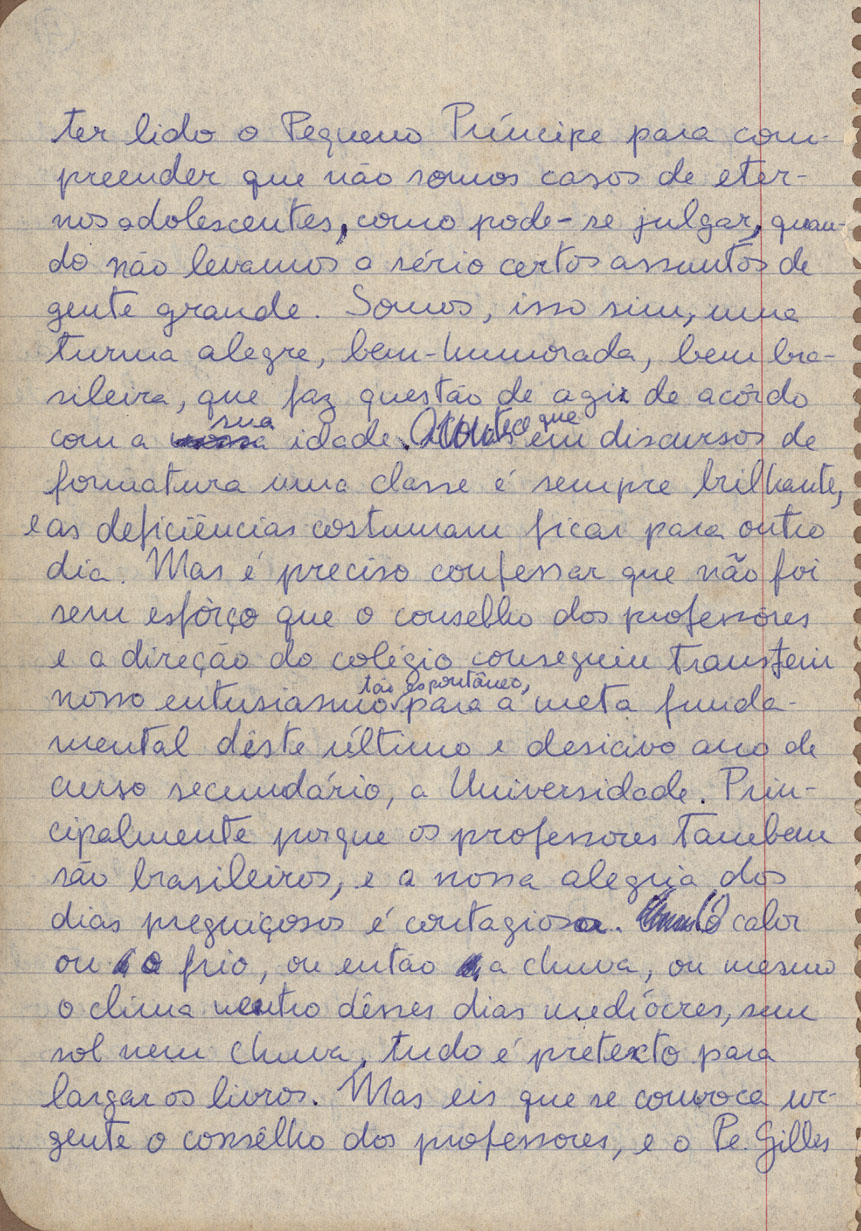 ter lido o Pequeno Príncipe para com-
preender que não somos casos de eter-
nos adolescentes, como pode-se julgar, quan-
do não levamos a sério certos assuntos de
gente grande. Somos, isso sim, uma
turma alegre, bem-humorada, bem bra-
sileira, que faz questão de agir de acôrdo
com a nossa sua idade. Acontece que em discursos de
formatura uma classe é sempre brilhante,
e as deficiências costumam ficar para outro
dia. Mas é preciso confessar que não foi
sem esfôrço que o conselho dos professôres
e a direção do colégio conseguiu transferir
nosso entusiasmo tão espontâneo, para a meta funda-
mental dêste último e desicivo ano de
curso secundário, a Universidade. Prin-
cipalmente porque os professores tambem
são brasileiros, e a nossa alegria dos
dias preguiçosos é contagiosa. O calor
ou o frio, ou então a chuva, ou mesmo
o clima neutro dêsses dias medíocres, sem
sol nem chuva, tudo é pretexto para
largar os livros. Mas eis que se convoca ur-
gente o consêlho dos professores, e o Pe. Gilles